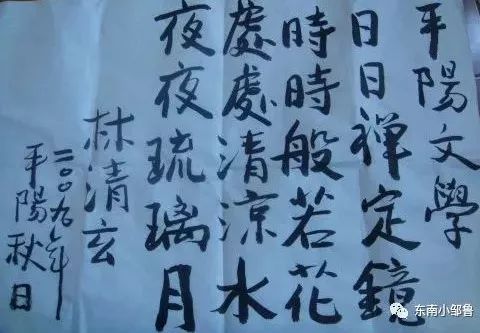 平陽文學
日日禅定鏡
時時般若花
處處清涼水
夜夜琉璃月
林清玄
二〇〇九年
平陽秋日
东南小邹鲁